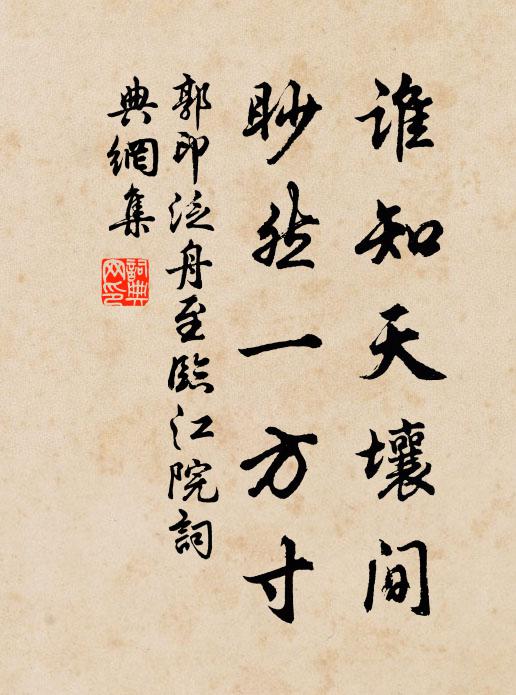 谁知天壤间
眇然一方寸
郭印泛舟至臨江院詞
典網集
詞典
网印